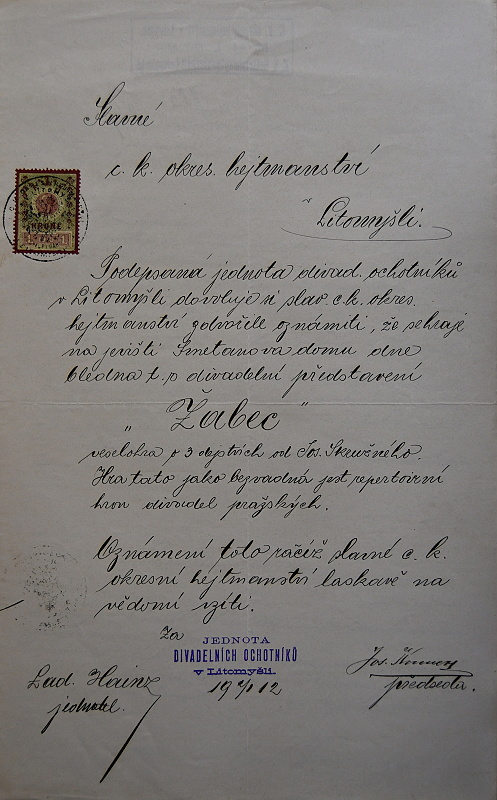 Slavné
c. k. okres. hejtmanství
v Litomyšli.
Podepsaná jednota divad. ochotníků
v Litomyšli dovoluje si slav. c. k. okres.
hejtmanství zdvořile oznámiti, že sehraje
na jevišti Smetanova domu dne
ledna t. r. divadelní představení
„Žabec"
veselohra o 3 dějstvích od Jos. Skružného.
Hra tato jako bezvadná jest repertoirní
hrou divadel pražských.
Oznámení toto račiž slavné c. k.
okresní hejtmanství laskavě na
vědomí vzíti.
Za
JEDNOTA
DIVADELNÍCH OCHOTNÍKŮ
v Litomyšli.
19 12
Lad. Hainz
jednatel.
Jos.
předseda.